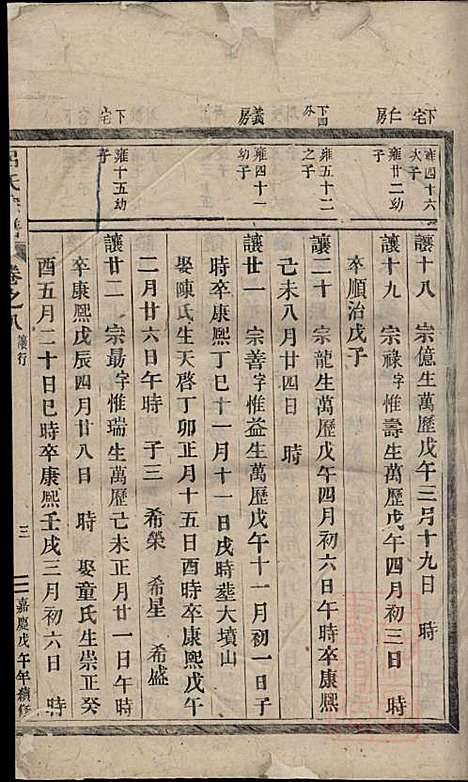 下宅仁房
義房
下宅
雍四十六大子
雍廿二幼子
雍五十二之子
雍四十一幼子
雍十五幼子
讓十八 宗億生萬歷戊午三月十九日 時
讓十九 宗祿字惟壽生萬歷戊午四月初三日 時
卒順治戊子
讓二十 宗龍生萬歷戊午四月初六日午時卒康熙
己未八月廿四日 時
讓廿一 宗善字惟益生萬歷戊午十一月初一日子
時卒康熙丁巳十一月十一日戌時塟大墳山
娶陳氏生天啓丁卯正月十五日酉時卒康熙戊午
二月廿六日午時 子三 希榮 希星 希盛
讓廿二 宗最字惟瑞生萬歷己未正月廿一日午時
卒康熙戊辰四月廿八日 時 娶童氏生崇正癸
酉五月二十日巳時卒康熙壬戌三月初六日 時
呂氏宗譜 卷之八 讓行 三 嘉慶戊午年續修